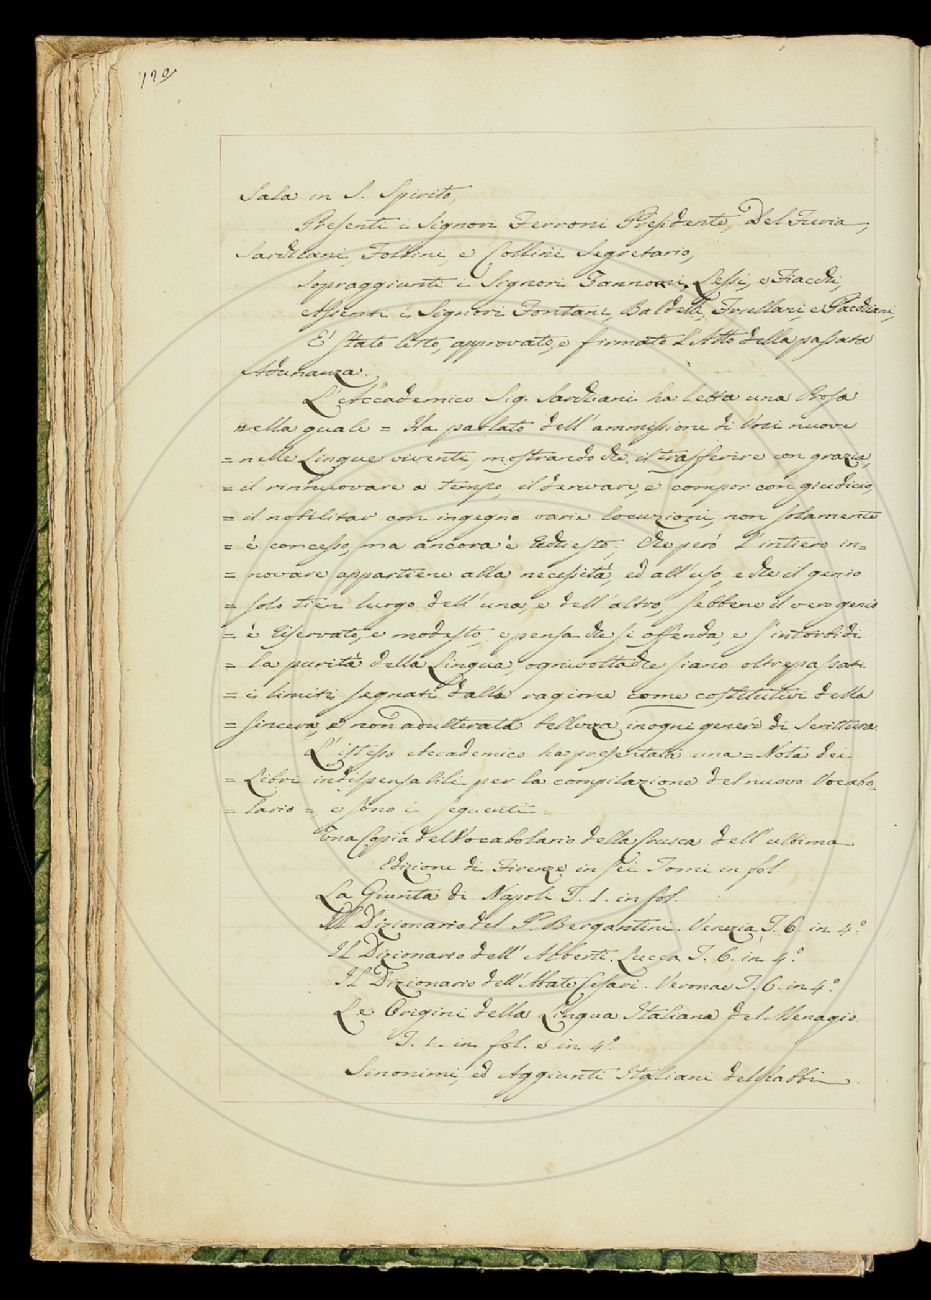 120
Sala in S. Spirito,
Presenti i Signori Ferroni Presidente, Del Furia,
Sarchiani, Follini e Collini Segretario,
Sopraggiunti i Signori Zannoni, Lessi, e Fiacchi,
Assenti i Signori Fontani, Baldelli, Frullani e Pacchiani,
E' stato letto, approvato, e firmato l'Atto della passata
Adunanza.
L'Accademico Sig. Sarchiani ha letta una Prosa
nella quale = Ha parlato dell'ammissione di Voci nuove
= nelle Lingue viventi, mostrando che il trasferire con grazia,
= il rinnuovare a tempo, il derivare, e compor con giudicio,
= il nobilitar con ingegno varie locuzioni, non solamente
= è concesso, ma ancora è richiesto; Che però l'intiero in=
= novare appartiene alla necessità, ed all'uso, e che il genio
= solo tien luogo dell'una, e dell'altro, sebbene il vero genio
= è riservato, e modesto, e pensa che si offenda, e s'intorbidi
= la purità della Lingua, ogni volta che siano oltrepassati
= i limiti segnati dalla ragione come costitutivi della
= sincera, e non adulterata bellezza in ogni genere di Scrittura.
L'istesso Accademico ha presentata una = Nota dei
= Libri indispensabili per la compilazione del nuovo Vocabo=
= lario = e sono i seguenti:
Una Copia del Vocabolario della Crusca dell'ultima
Edizione di Firenze in sei Tomi in fol.
La Giunta di Napoli T. 1. in fol.
Il Dizionario del P. Bergantini. Venezia T. 6. in 4.º
Il Dizionario dell'Alberti. Lucca T. 6. in 4.º
Il Dizionario dell'Abate Cesari. Verona T. 6. in 4.º
Le Origini della Lingua Italiana del Menagio
T. 1. in fol. e in 4.º
Sinonimi, ed Aggiunti Italiani del Rabbi